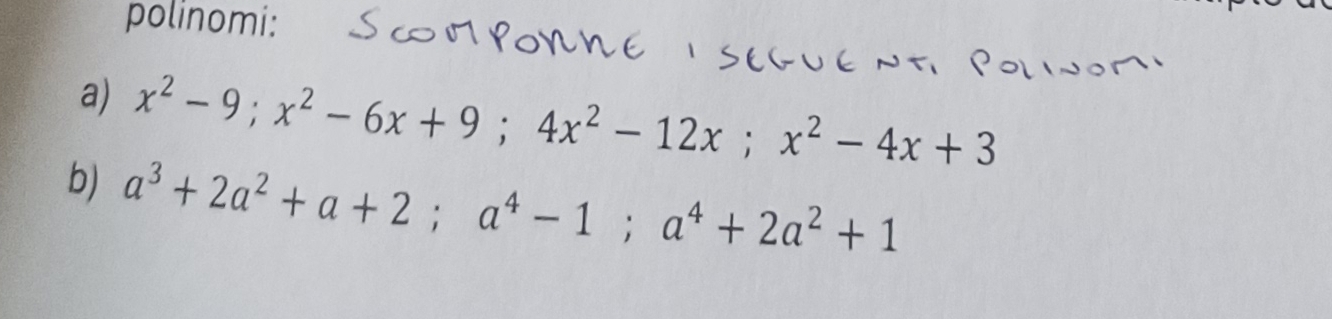 polinomi: SCOMPORRE I SEGUENTI POLINOMI
a) x² – 9 ; x² – 6x + 9 ; 4x² – 12x ; x² – 4x + 3
b) a³ + 2a² + a + 2 ; a⁴ – 1 ; a⁴ + 2a² + 1